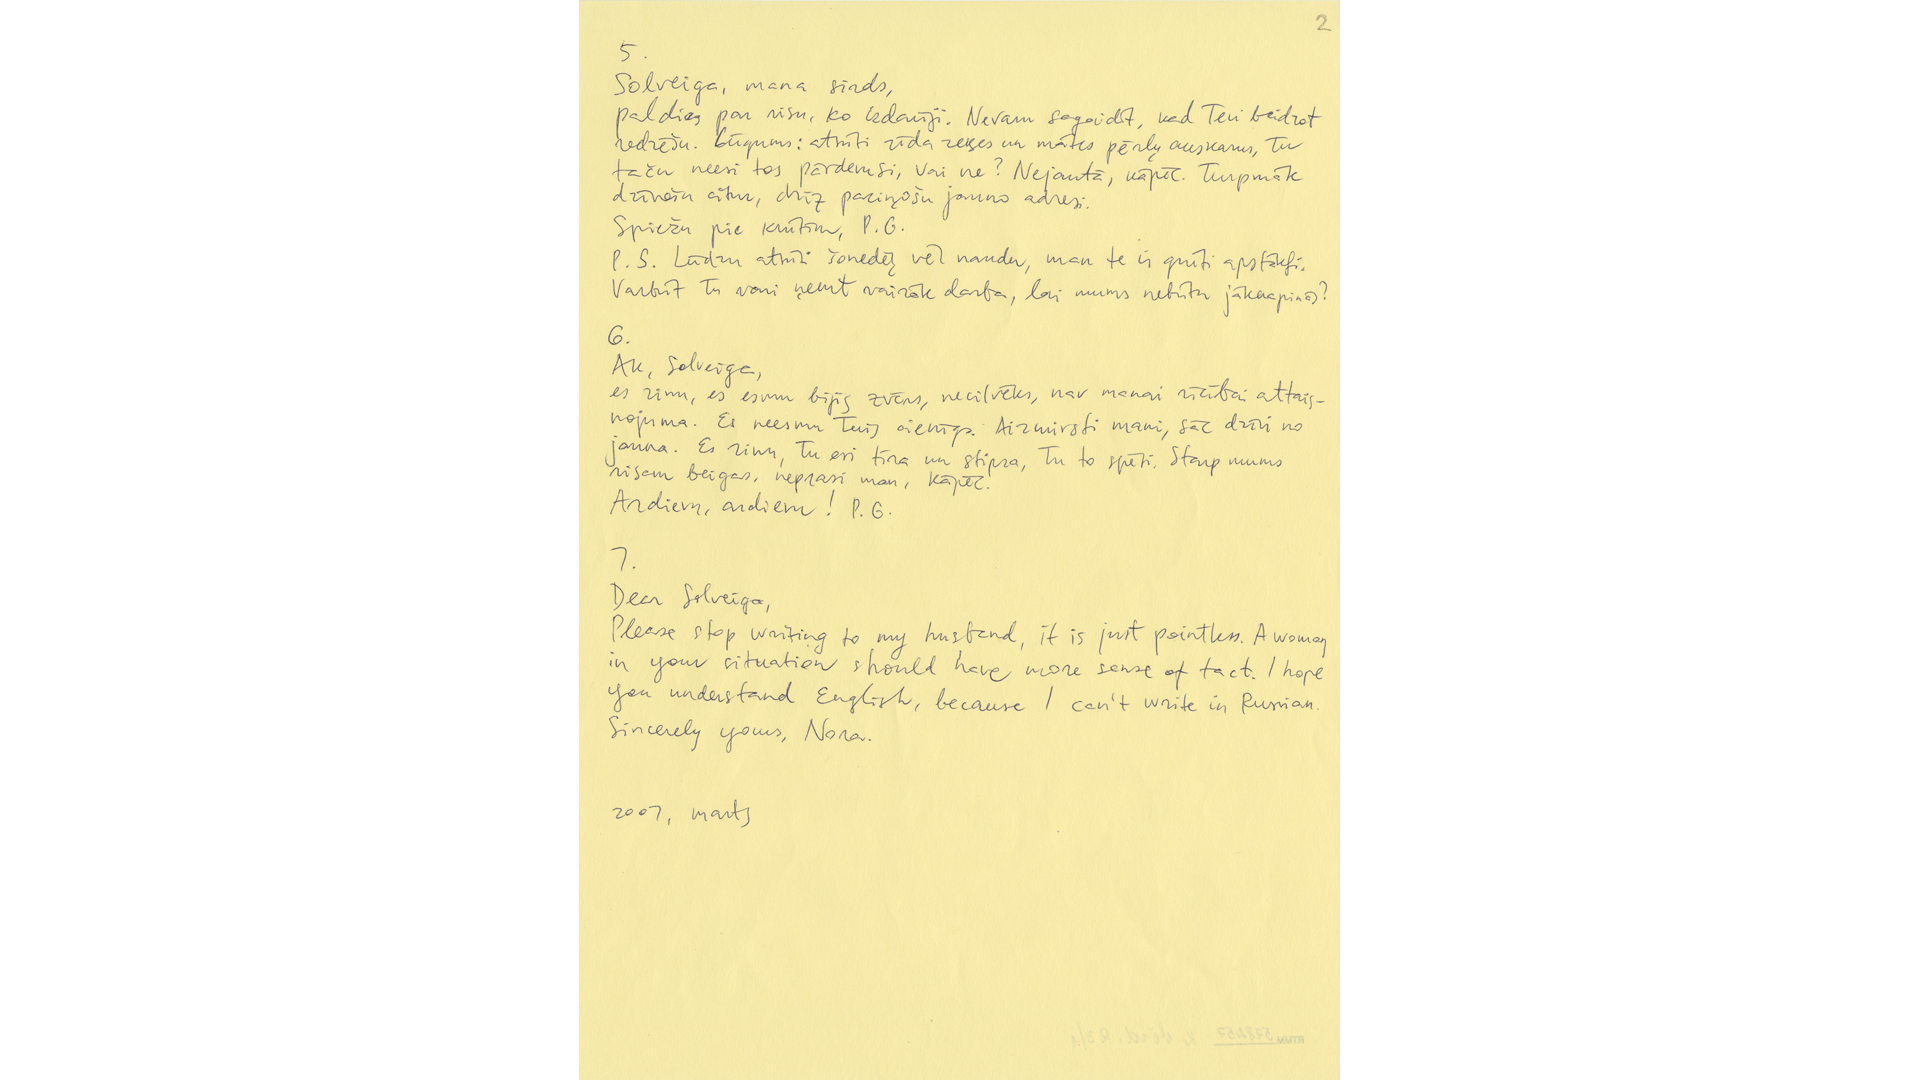 2
5.
Solveiga, mana sirds,
paldies par visu, ko izdarīji. Nevaru sagaidīt, kad Tevi beidzot
redzēšu. Lūgums: atsūti zīda zeķes un mātes pērļu auskarus, Tu
taču neesi tos pārdevusi, vai ne? Nejautā, kāpēc. Turpmāk
dzīvošu citur, drīz paziņošu jauno adresi.
Spiežu pie krūtīm, P.G.
P.S. Lūdzu atsūti šonedēļ vēl naudu, man te ir grūti apstākļi.
Varbūt Tu vari ņemt vairāk darba, lai mums nebūtu jāknapinās?
6.
Ak, Solveiga,
es zinu, es esmu bijis zvērs, necilvēks, nav manai rīcībai attais-
nojuma. Es neesmu Tevis cienīgs. Aizmirsti mani, sāc dzīvi no
jauna. Es zinu, Tu esi tīra un stipra, Tu to spēsi. Starp mums
visam beigas, neprasi man, kāpēc.
Ardievu, ardievu! P.G.
7.
Dear Solveiga,
Please stop writing to my husband, it is just pointless. A woman
in your situation should have more sense of tact. I hope
you understand English, because I can't write in Russian.
Sincerely yours, Nora.
2007, marts